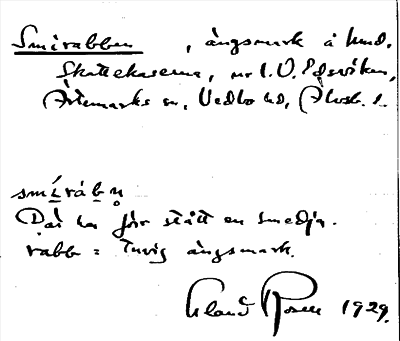 Smirabben, ängsmark å hmd.
Skattekaserna, nr 1. V. Edsviken,
Ärtemarks sn, Vedbo hd, Älvsb. l.
smíràbn̥
Där har förr stått en smedja.
rabb = tuvig ängsmark.
Rosell 1929.